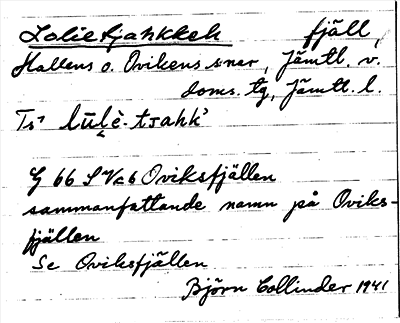 Lolietjahkkeh fjäll,
Hallens o. Ovikens snr, Jämtl. v.
doms. tg, Jämtl. l.
Ts
G 66 S Oviksfjällen
sammanfattande namn på Oviks-
fjällen
Se Oviksfjällen
Björn Collinder 1941